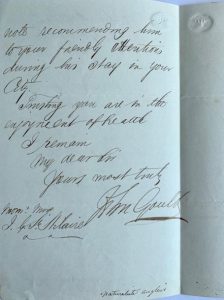 note recommending him
to your friendly attention
during his stay in your
City.
Trusting you are in the
enjoyment of health
I remain
My dear Sir
Yours most truly
John Gould
J. G. St Hilaire
"naturaliste anglais"